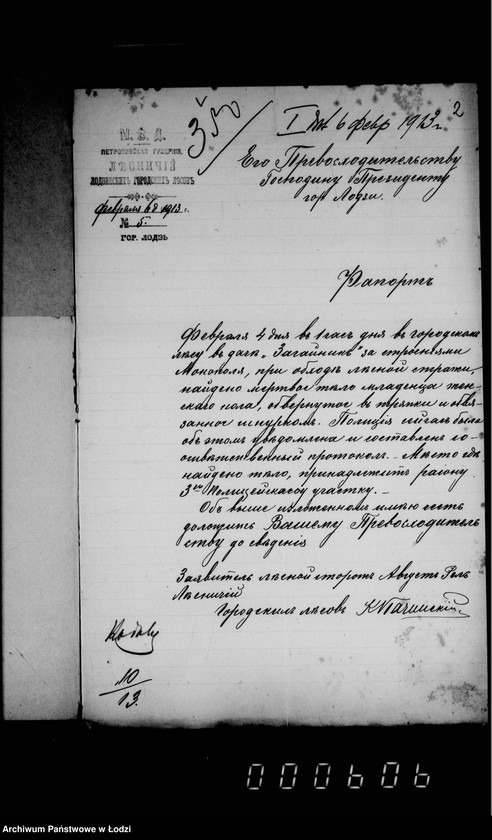 2
350
I Дѣл 6 февр 1913 г.
М. В. Д.
ПЕТРОКОВСКАЯ ГУБЕРНІЯ.
ЛѢСНИЧІЙ
ЛОДЗИНСКИХЪ ГОРОДСКИХЪ ЛѢСОВЪ
февраля 6 д 1913 г.
№ 5.
ГОР. ЛОДЗЬ
Его Превосходительству
Господину Президенту
гор Лодзи.
Рапортъ
Февраля 4 дня въ 1 часъ дня въ городскомъ
лѣсу въ дачѣ „Загайникъ" за строеніями
Монополя, при обходѣ лѣсной стражи,
найдено мертвое тѣло младенца жен-
скаго пола, обвернутое въ тряпки и обвя-
занное шнуркомъ. Полиція сейчасъ была
объ этомъ увѣдомлена и составленъ со-
отвѣтственный протоколъ. — Мѣсто гдѣ
найдено тѣло, принадлежитъ району
3го Полицейскаго участку. —
Объ выше изложенномъ имѣю честь
доложить Вашему Превосходитель
ству до свѣденія
Заявитель лѣсной сторожъ Августъ Рель
Лѣсничій
Городскихъ лѣсовъ
Къ дѣлу
10/13.
000606
Archiwum Państwowe w Łodzi